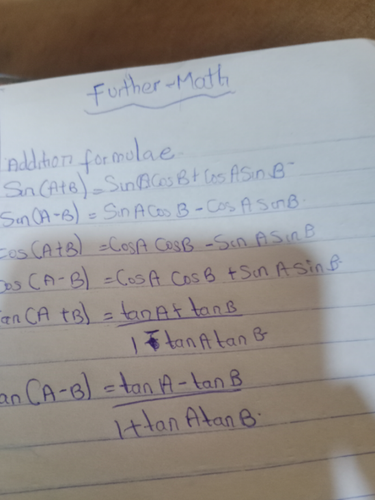 Further-Math
Addition formulae
Sin(A+B)=SinBCosB+CosASinB
Sin(A-B) = SinACosB-CosASinB
Cos(A+B) =CosA CosB -SinASinB
Cos(A-B) =CosA CosB +SinASinB
tan(A+B) = tanA+tanB
1-tanAtanB
tan(A-B) =tanA-tanB
1+tanAtanB.